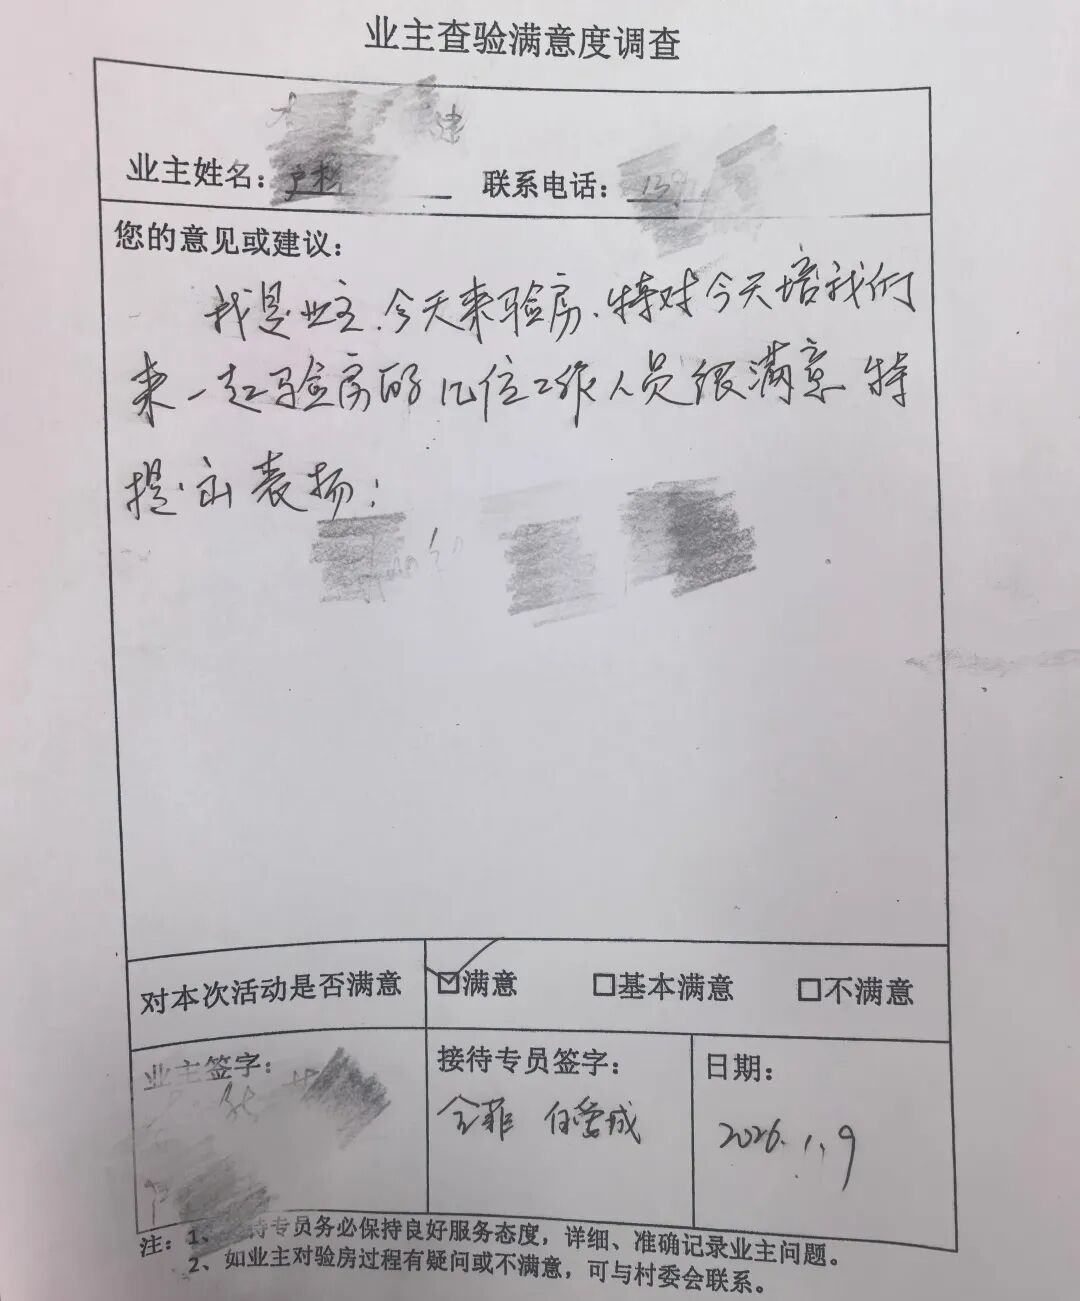 业主查验满意度调查
业主姓名：
联系电话：
您的意见或建议：
我是业主.今天来验房.特对今天培我们
来一起验房的几位工作人员很满意 特
提出表扬：
对本次活动是否满意
☑满意
□基本满意
□不满意
业主签字：
接待专员签字：
日期：
2026.1.9
注：1、待专员务必保持良好服务态度，详细、准确记录业主问题。
2、如业主对验房过程有疑问或不满意，可与村委会联系。